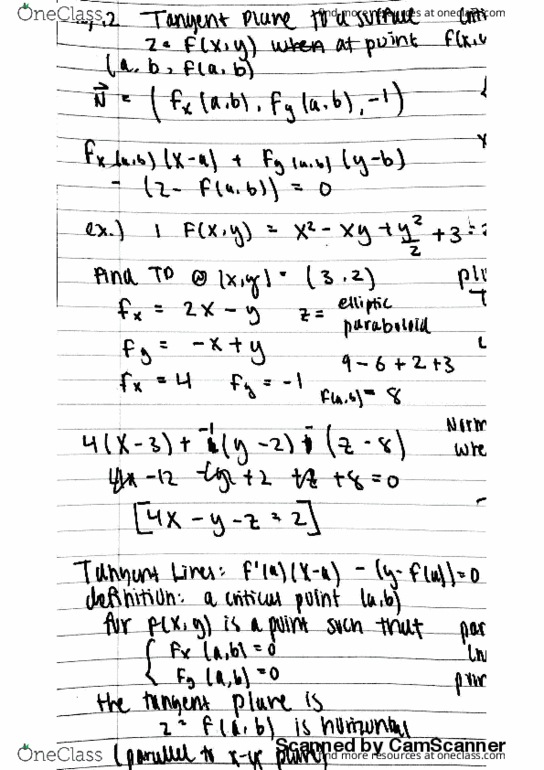 OneClass
find more resources at oneclass.com
.2 Tangent plane to a surface
z = f(x,y) when at point f(x,
(a, b, f(a,b)
N = (fx (a,b), fy (a,b), -1)
fx (a,b) (x-a) + fy (a,b) (y-b)
- (z - f(a,b)) = 0
ex.) 1 F(x,y) = x² - xy + y²/2 + 3 = z
Find TP @ (x,y) = (3,2)
fx = 2x - y z = elliptic
paraboloid
fy = -x + y
9 - 6 + 2 + 3
fx = 4 fy = -1 f(a,b) = 8
4(x-3) + -1(y-2) - (z-8)
4x - 12 - y + 2 - z + 8 = 0
[4x - y - z = 2]
Tangent Lines: f'(a)(x-a) - (y-f(a)) = 0
definition: a critical point (a,b)
for f(x,y) is a point such that
{ fx (a,b) = 0
fy (a,b) = 0
the tangent plane is
z = f(a,b) is horizontal
(parallel to x-y plane)
Scanned by CamScanner
OneClass
find more resources at oneclass.com